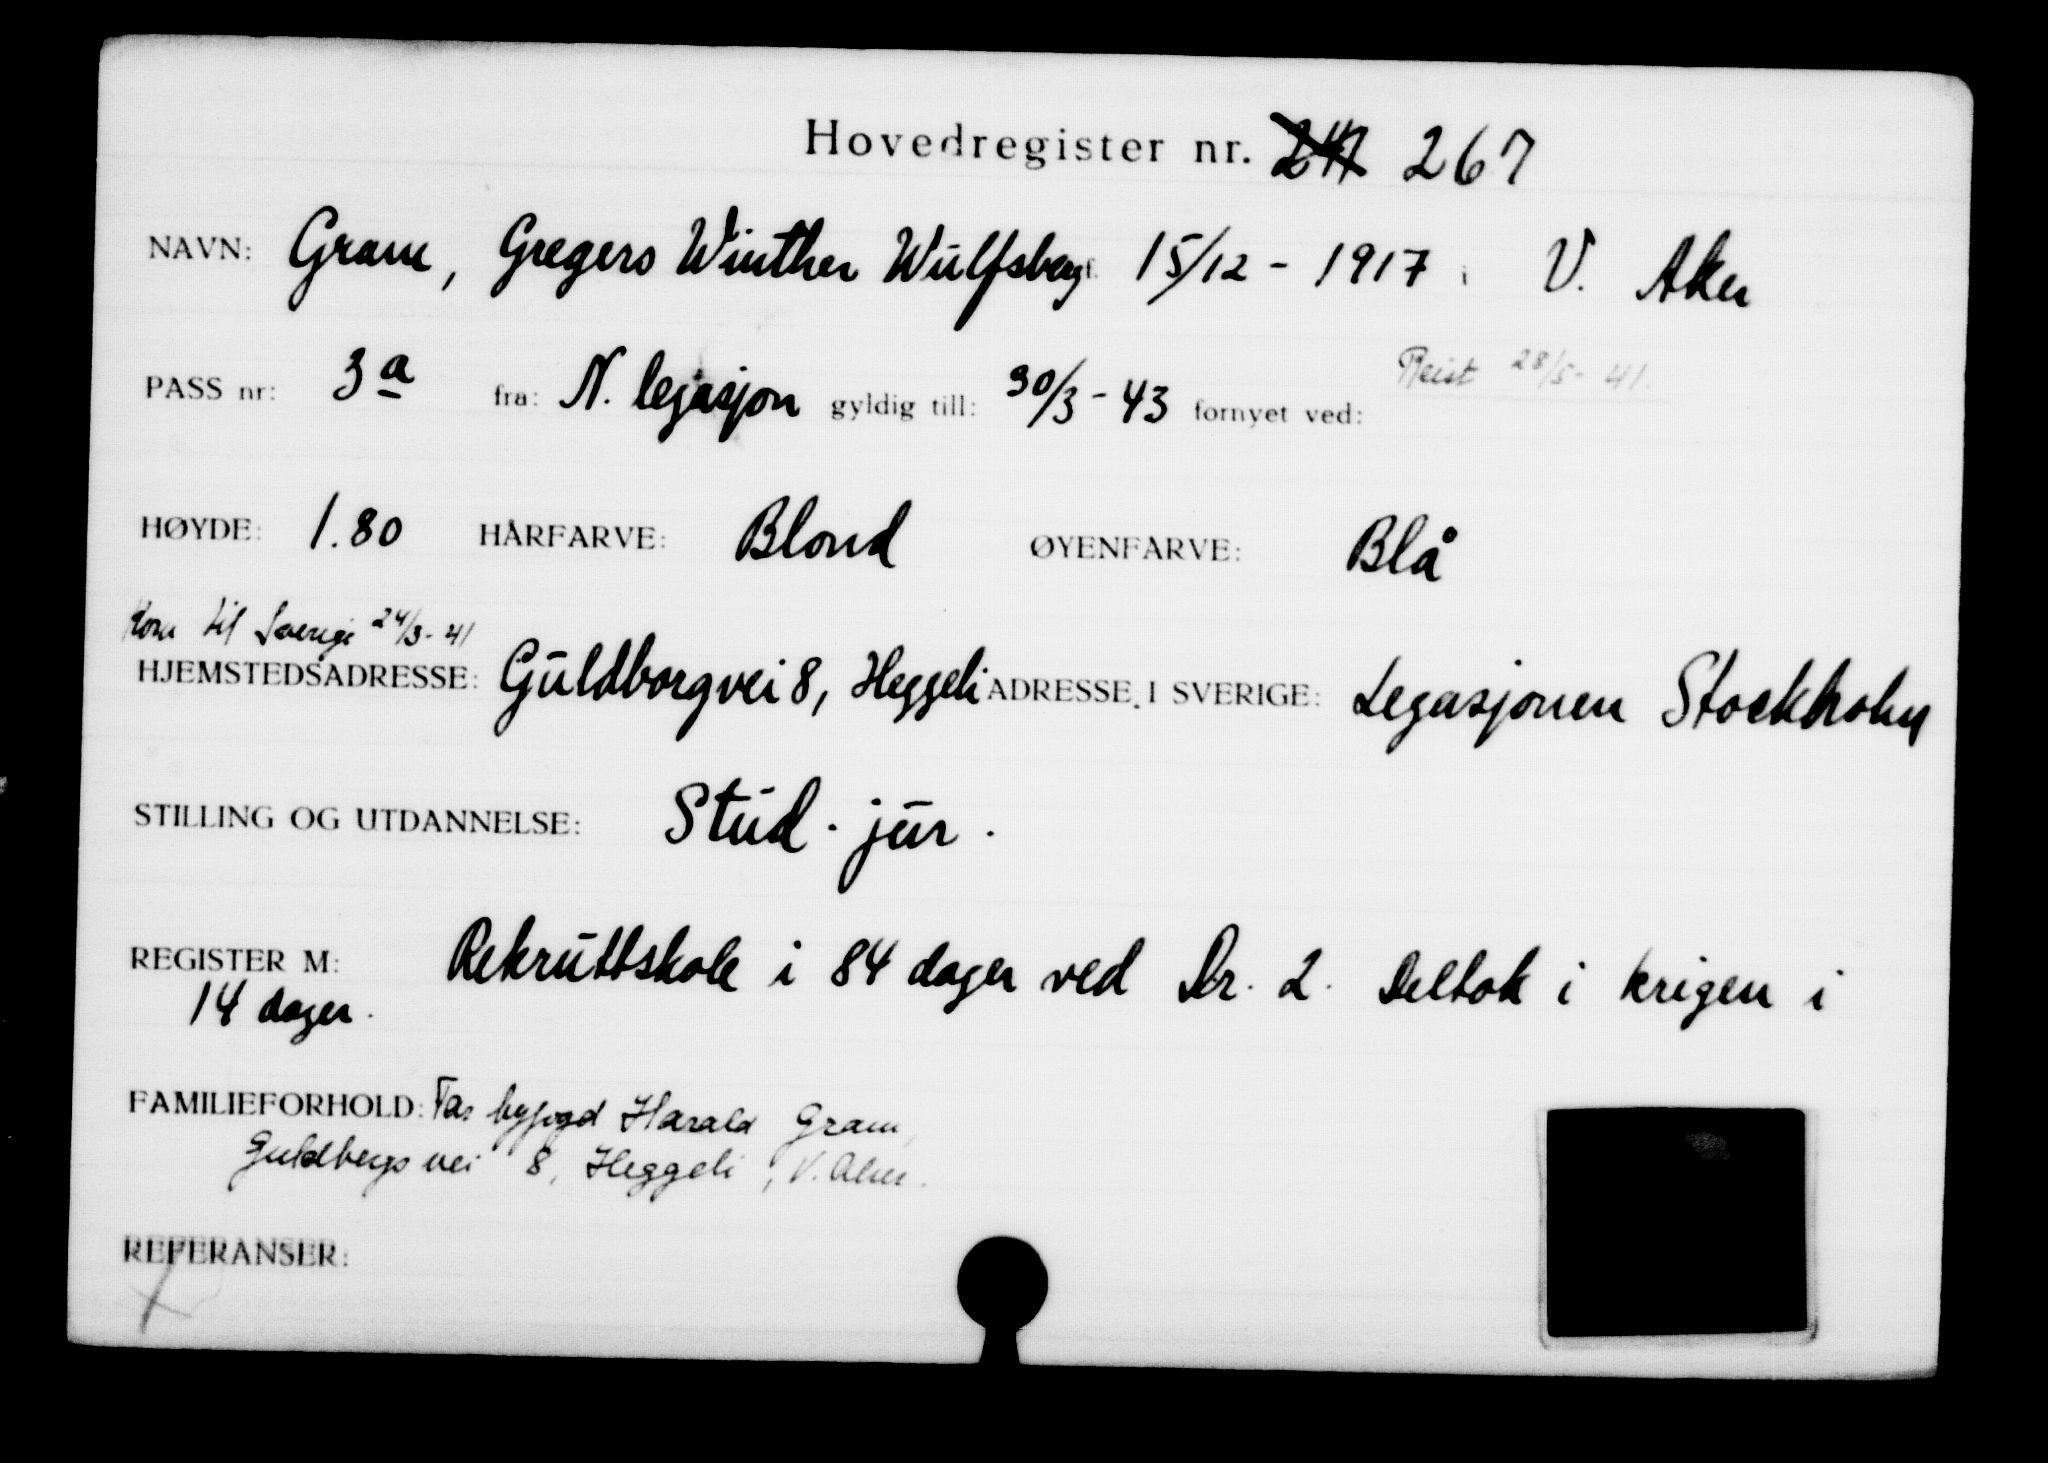 Hovedregister nr. 267
NAVN: Gram, Gregers Winther Wulfsberg f. 15/12 - 1917 i V. Aker
Reist 28/5 - 41.
PASS nr: 3a fra: N. legasjon gyldig till: 30/3 - 43 fornyet ved:
HØYDE: 1.80 HÅRFARVE: Blond ØYENFARVE: Blå
Kom til Sverige 24/3 - 41
HJEMSTEDSADRESSE: Guldborgvei 8, Heggeli ADRESSE I SVERIGE: Legasjonen Stockholm
STILLING OG UTDANNELSE: Stud. jur.
REGISTER M: Rekruttskole i 84 dager ved Dr. 2. Deltok i krigen i
14 dager.
FAMILIEFORHOLD: Far byfogd Harald Gram,
Guldbergs vei 8, Heggeli, V. Aker.
REFERANSER: